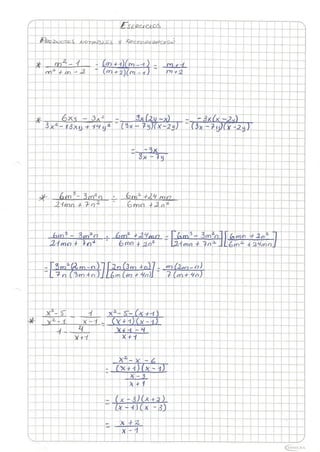 EJERCICIOS
PRODUCTOS NOTABLES Y FACTORIZACIÓN
* (m² - 1)/(m² + m - 2) = ((m+1)(m-1))/((m+2)(m-1)) = (m+1)/(m+2)
* (6xy - 3x²)/(3x² - 13xy + 14y²) = (3x(2y-x))/((3x-7y)(x-2y)) = (-3x(x-2y))/((3x-7y)(x-2y))
= (-3x)/(3x-7y)
* (6m³ - 3m²n)/(21mn + 7n²) ÷ (6m² + 24mn)/(6mn + 2n²)
(6m³ - 3m²n)/(21mn + 7n²) ÷ (6m² + 24mn)/(6mn + 2n²) = [(6m³ - 3m²n)/(21mn + 7n²)] [(6mn + 2n²)/(6m² + 24mn)]
= [(3m²(2m-n))/(7n(3m+n))] [(2n(3m+n))/(6m(m+4n))] = (m(2m-n))/(7(m+4n))
* ((x²-5)/(x²-1) - 1/(x-1))/(1 - 4/(x+1)) = ((x²-5-(x+1))/((x+1)(x-1)))/((x+1-4)/(x+1))
= ((x²-x-6)/((x+1)(x-1)))/((x-3)/(x+1))
= ((x-3)(x+2))/((x-1)(x-3))
= (x+2)/(x-1)